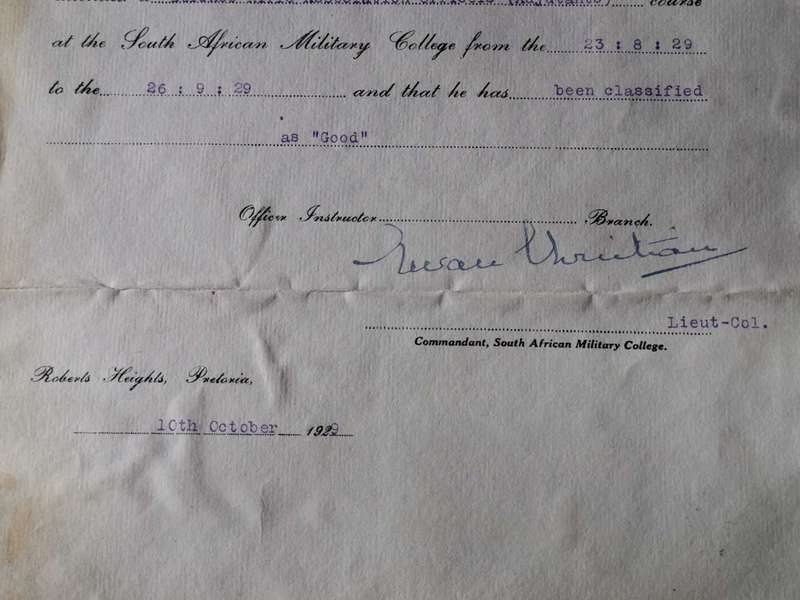 course
at the South African Military College from the 23 : 8 : 29
to the 26 : 9 : 29 and that he has been classified
as "Good"
Officer Instructor Branch.
Christian
Lieut-Col.
Commandant, South African Military College.
Roberts Heights, Pretoria,
10th October 1929